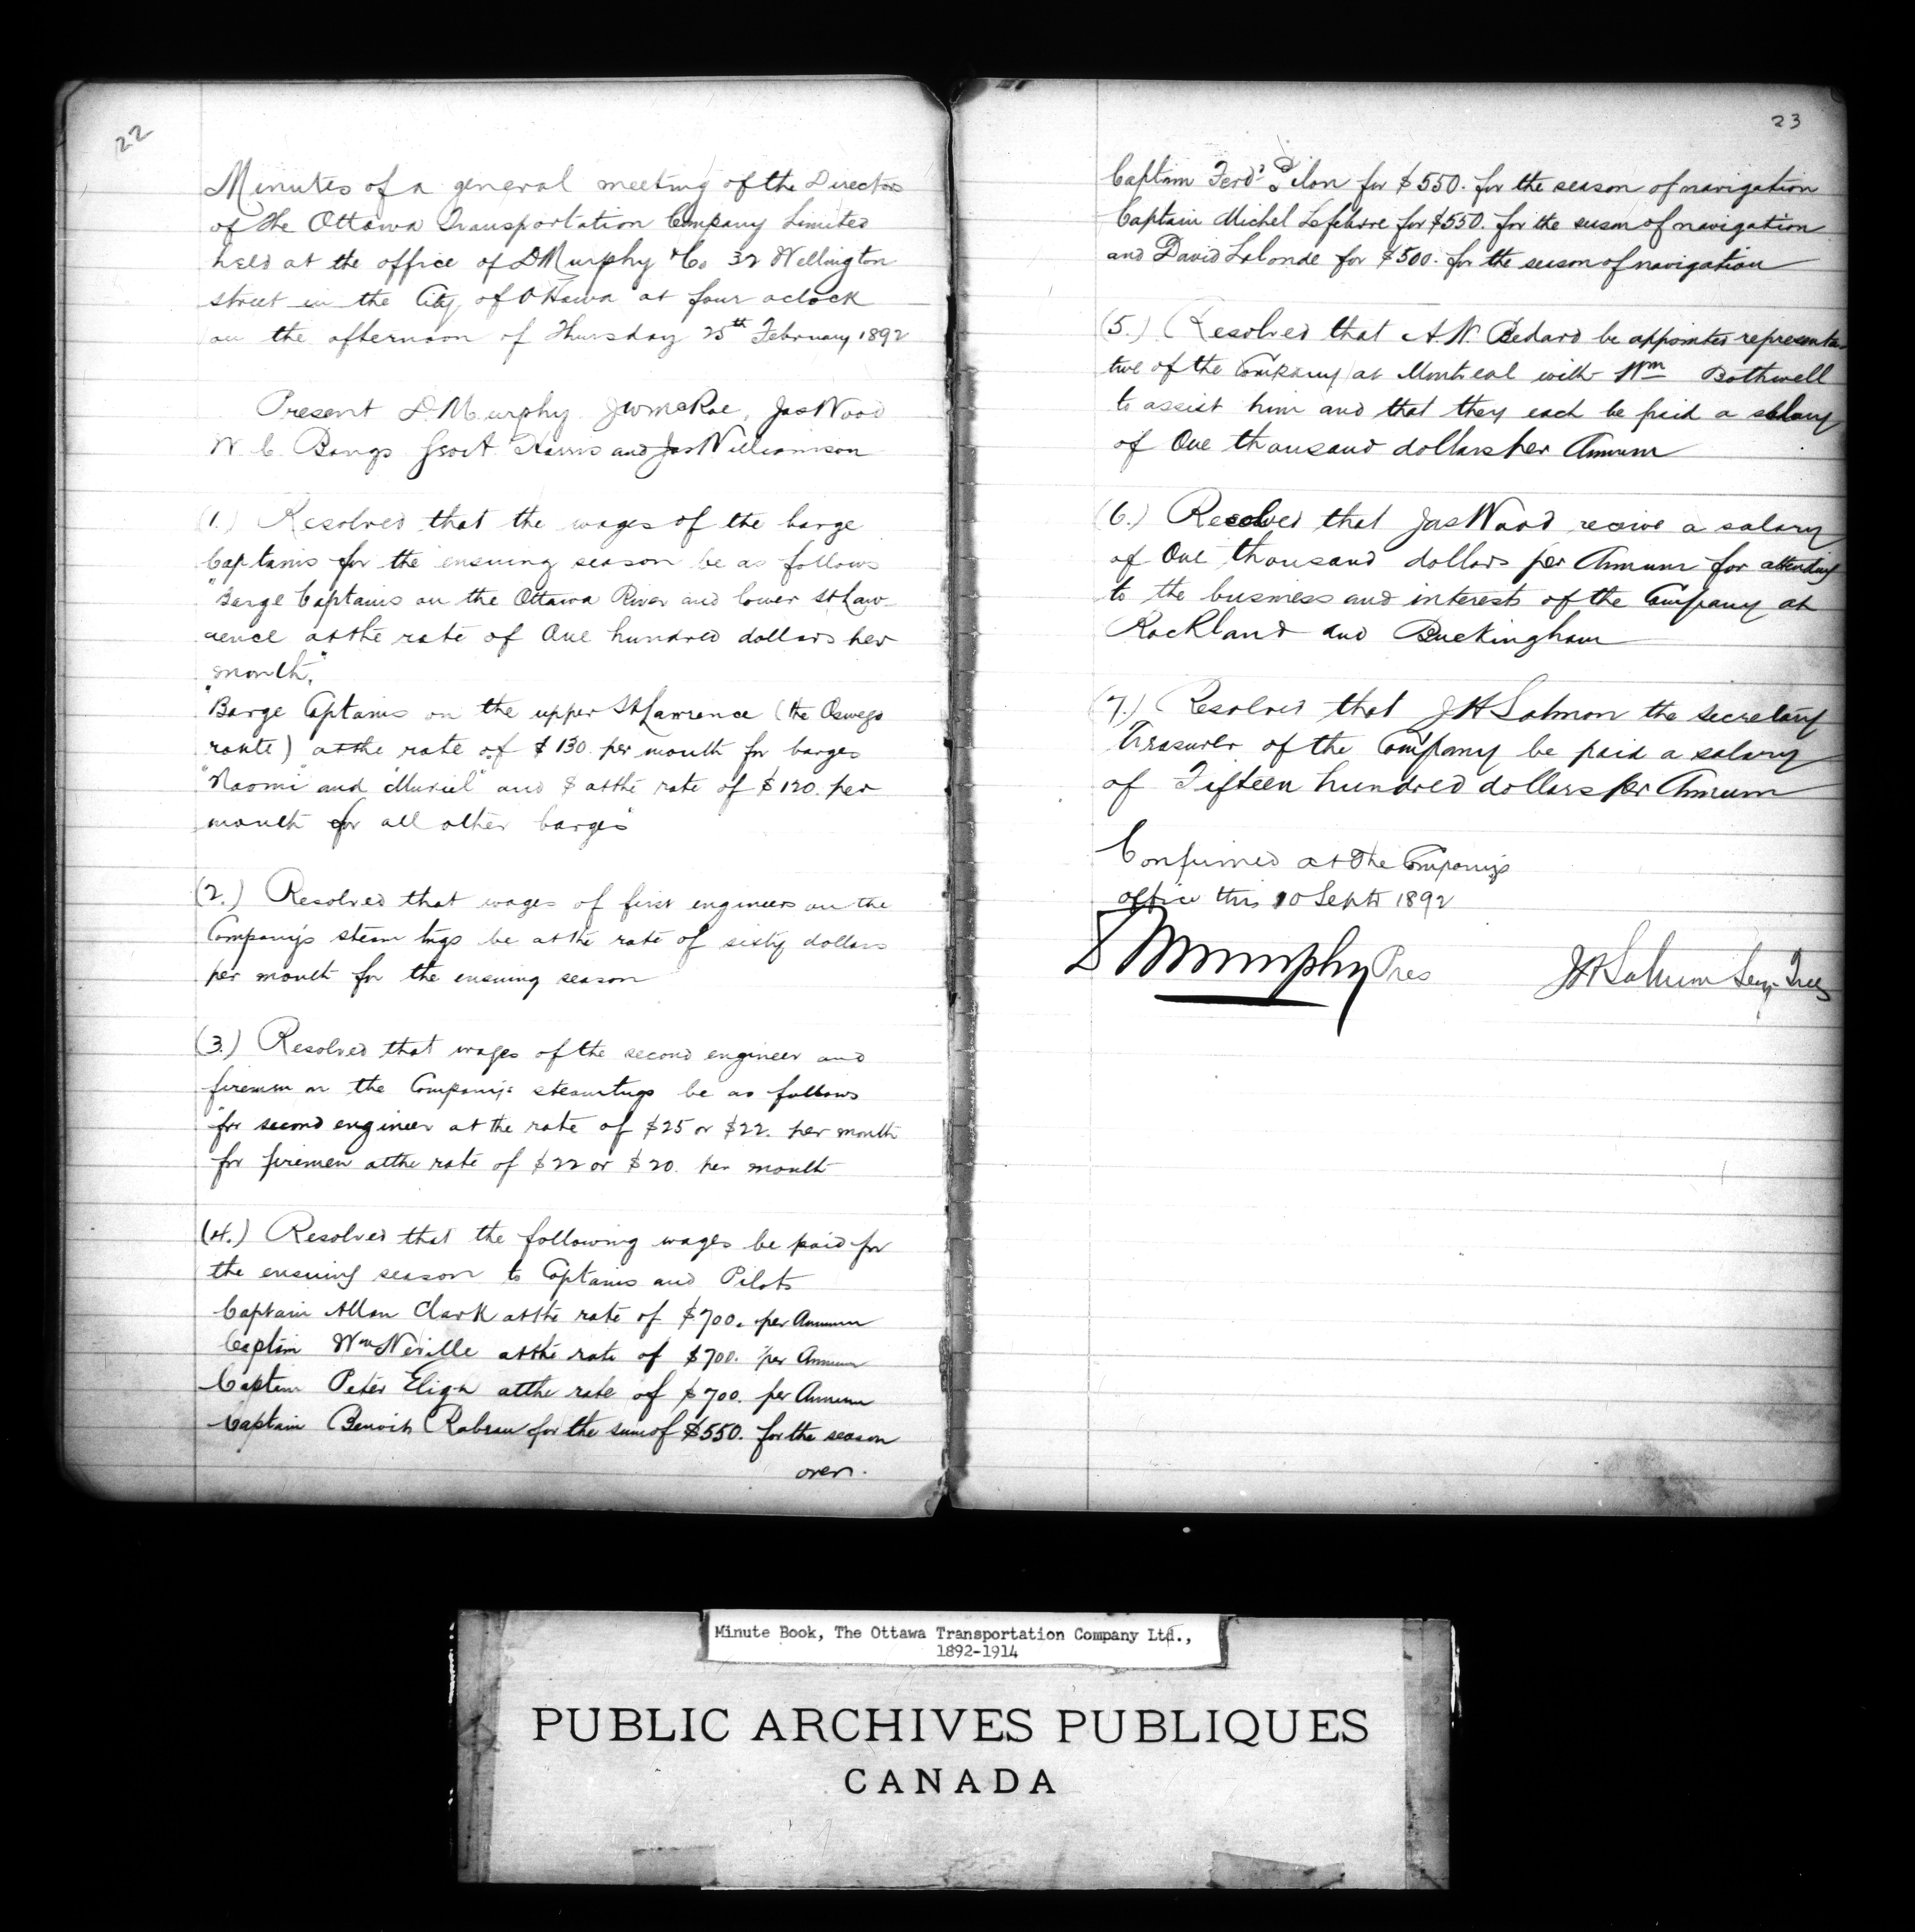 22
Minutes of a general meeting of the Directors
of the Ottawa Transportation Company Limited
held at the office of D Murphy & Co 32 Wellington
street in the City of Ottawa at four oclock
on the afternoon of Thursday 25th February 1892
Present D. Murphy J W McRae, Jas Wood
W. C. Bangs Harris and Jas Williamson
(1.) Resolved that the wages of the barge
Captains for the ensuing season be as follows
"Barge Captains on the Ottawa River and lower St Law-
rence at the rate of One hundred dollars per
month."
"Barge Captains on the upper St Lawrence (the Oswego
route) at the rate of $130. per month for barges
"Naomi" and "Muriel" and $ at the rate of $120. per
month for all other barges"
(2.) Resolved that wages of first engineers on the
Company's steam tugs be at the rate of sixty dollars
per month for the ensuing season
(3.) Resolved that wages of the second engineer and
firemen on the Company's steamtugs be as follows
"for second engineer at the rate of $25 or $22. per month
for firemen at the rate of $22 or $20. per month
(4.) Resolved that the following wages be paid for
the ensuing season to Captains and Pilots
Captain Allan Clark at the rate of $700. per Annum
Captain Wm Neville at the rate of $700. per Annum
Captain Peter Eligh at the rate of $700. per Annum
Captain Benoit for the sum of $550. for the season
over.
23
Captain Ferdd Pilon for $550. for the season of navigation
Captain Michel Lefebvre for $550. for the season of navigation
and David Lalonde for $500. for the season of navigation
(5.) Resolved that A. N. Bedard be appointed representa-
tive of the Company at Montreal with Wm Bothwell
to assist him and that they each be paid a salary
of One thousand dollars per Annum
(6.) Resolved that Jas Wood receive a salary
of One thousand dollars per Annum for attending
to the business and interests of the Company at
Rockland and Buckingham
(7.) Resolved that J H Salmon the secretary
Treasurer of the Company be paid a salary
of Fifteen hundred dollars per Annum
Confirmed at the Company's
office this 10 Septr 1892
D Murphy Pres
J H Salmon Secy-Treas
Minute Book, The Ottawa Transportation Company Ltd.,
1892-1914
PUBLIC ARCHIVES PUBLIQUES
CANADA